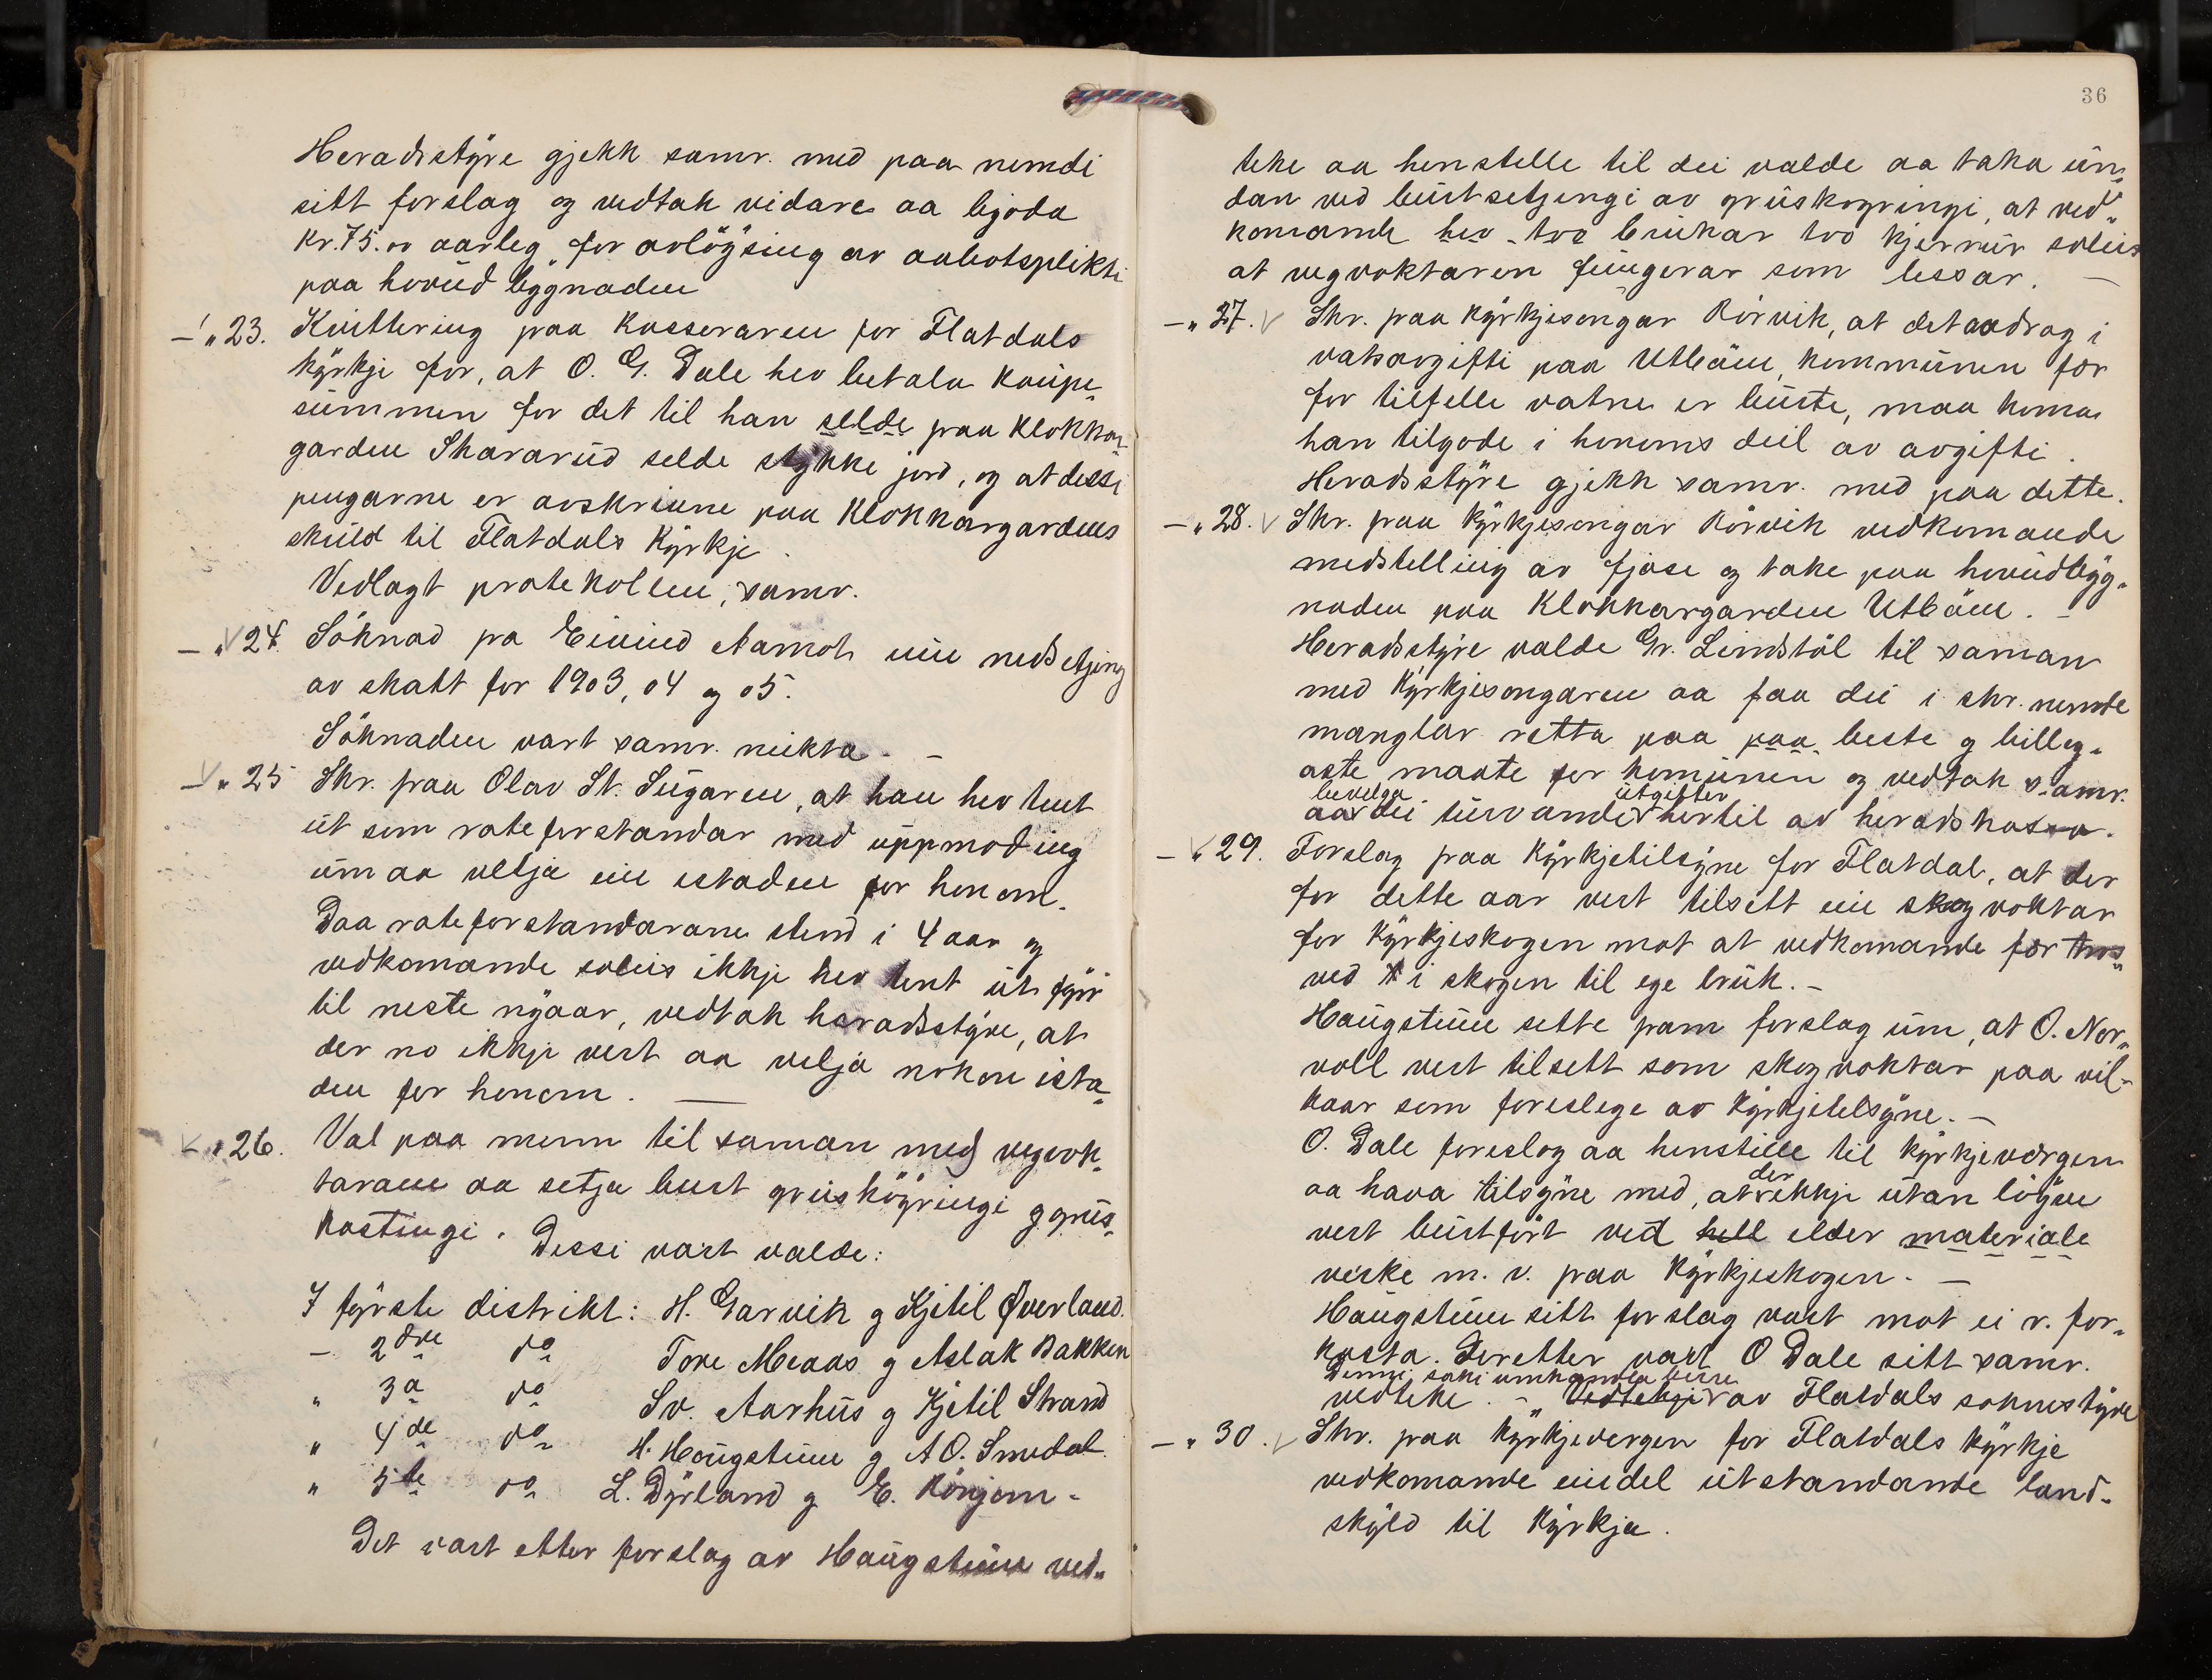 Heradsstyre gjekk samr. med paa nemdi
sitt forslag og vedtak vidare aa bjoda
Kr. 75.00 aarleg for avløysing av aabotsplikti
paa hovud byggnaden
—"23. Kvittering paa Kasseraren for Flatdals
kyrkje for, at O. G. Dale hev betala kaupe„
summen for det til han selde paa Klokkar„
garden Skararud selde stykke jord, og at dessi
pengarne er avskrivne paa Klokkargardens
skuld til Flatdals Kyrkje.
Vedlagt protokollen, samr.
—"24. Söknad fra Eivind Aamot um nedsetjing
av skatt for 1903, 04 og 05.
Söknaden vart samr. neikta. —
—"25 Skr. fraa Olav St. Sugaren, at han hev tent
ut som rodeforstandar med uppmoding
um aa velja ein istaden for honom.
Daa rodeforstandarane stend i 4 aar og
vedkomande soleis ikkje hev tent ut fyrr
til neste nyaar, vedtak heradsstyre, at
der no ikkje vert aa velja nokon ista„
den for honom. —
—"26. Val paa menn til saman med vegvok„
tarane aa setja burt gruskøyringi g grus„
kastingi. Dessi vart valde:
I fyrste distrikt: H. Garvik g Kjetil Øverland.
— 2dre do Tore Meaas g Aslak Bakken
" 3a do Sv. Aarhus g Kjetil Strand
" 4de do H. Haugstuen g A O. Smedal
" 5te do L. Dyrland g E. Rönjom.
Det vart etter forslag av Haugstuen ved„
36
teke aa henstelle til dei valde aa taka un„
dan ved burtsetjingi av gruskøyringi, at ved„
komande hev tvo brukar tvo kjerrur soleis
at vegvoktaren fungerar som lessar. —
—"27. Skr. fraa Kyrkjesongar Rörvik, at det avdrag i
vatsavgifti paa Utbøen, kommunen fær
for tilfelle vatne er burte, maa koma
han tilgode i honoms deil av avgifti.
Heradsstyre gjekk samr. med paa dette.
—"28. Skr. fraa Kyrkjesongar Rörvik vedkomande
istandstelling av fjose og take paa hovudbyg„
naden paa Klokkargarden Utbøen. —
Heradsstyre valde Gr. Lindstöl til saman
med Kyrkjesongaren aa faa dei i skr. nemde
manglar retta paa paa beste g billeg„
aste maate for komunen og vedtak samr.
bevelga utgifter
aa dei turvande hertil av heradskassa.
—"29. Forslag fraa Kyrkjetilsyne for Flatdal, at der
for dette aar vert tilsett ein skogvoktar
for Kyrkjeskogen mot at vedkomande fær
ved i skogen til ege bruk. —
Haugstuen sette fram forslag um, at O. Nor„
voll vert tilsett som skogvoktar paa vil„
kaar som foreslege av Kyrkjetilsyne. —
O. Dale foreslog aa henstille til kyrkjeværgen
der
aa hava tilsyne med, at ikkje utan löyve
vert burtført ved hell elder materiale
virke m. v. fraa Kyrkjeskogen. —
Haugstuen sitt forslag vart mot ei r. for„
kasta. Deretter vart O Dale sitt samr.
Denni saki umhandla berre
vedteke. — Vedtekje av Flatdals soknestyre
—"30. Skr. fraa Kyrkjevergen for Flatdals Kyrkje
vedkomande eindel utstandande land„
skyld til Kyrkja.